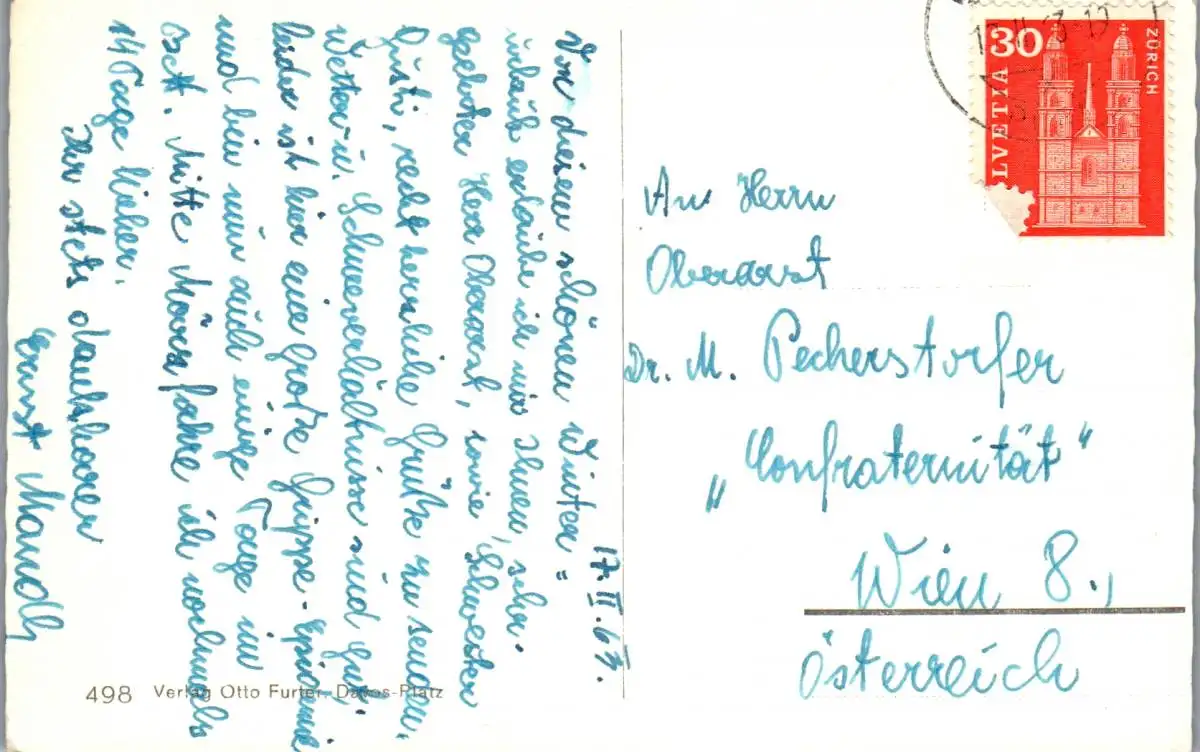 17. II. 63.
Von diesem schönen Winter=
urlaub erlaube ich mir Ihnen, sehr
geehrter Herr Oberarzt, sowie Schwester
Gusti, recht herzliche Grüße zu senden.
Wetter- u. Schneeverhältnisse sind gut,
leider ist hier eine große Grippe-Epidemie
und bin nun auch einige Tage im
Bett. Mitte März fahre ich nochmals
14 Tage hieher.
Ihr stets dankbarer
Ernst Mandl
498 Verlag Otto Furter, Davos-Platz
30
HELVETIA
ZÜRICH
An Herrn
Oberarzt
Dr. M. Pecherstorfer
„Confraternität"
Wien 8.,
Österreich